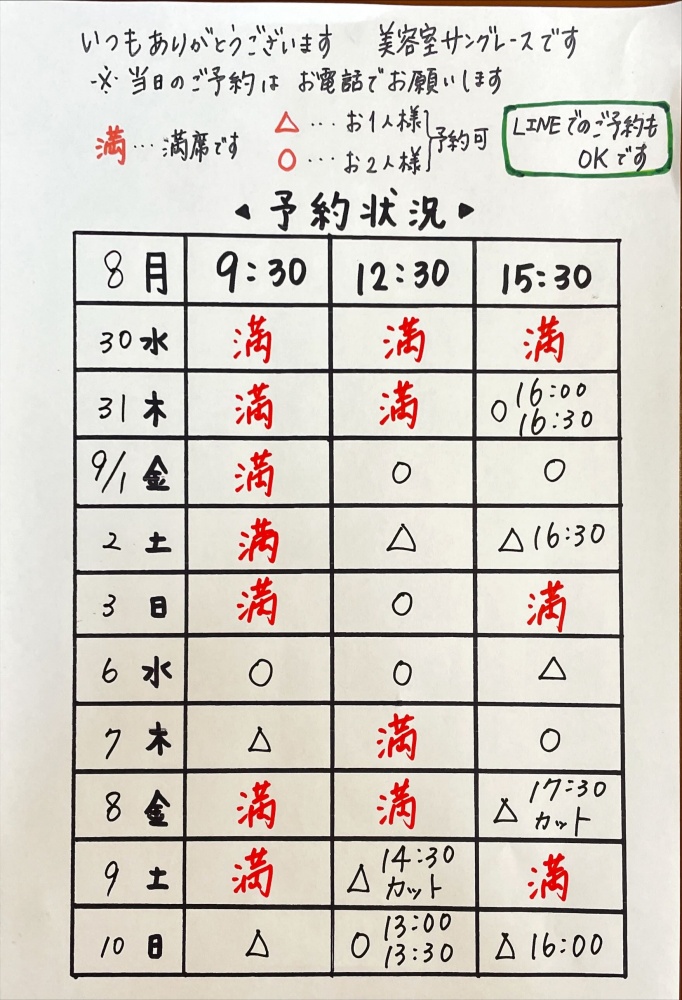 いつもありがとうございます 美容室サングレースです
※ 当日のご予約は お電話でお願いします
満…満席です
△…お1人様
○…お2人様
予約可
LINEでのご予約も
OKです
◀予約状況▶
8月 9:30 12:30 15:30
30水 満 満 満
31木 満 満 ○16:00 16:30
9/1金 満 ○ ○
2土 満 △ △16:30
3日 満 ○ 満
6水 ○ ○ △
7木 △ 満 ○
8金 満 満 △17:30カット
9土 満 △14:30カット 満
10日 △ ○13:00 13:30 △16:00